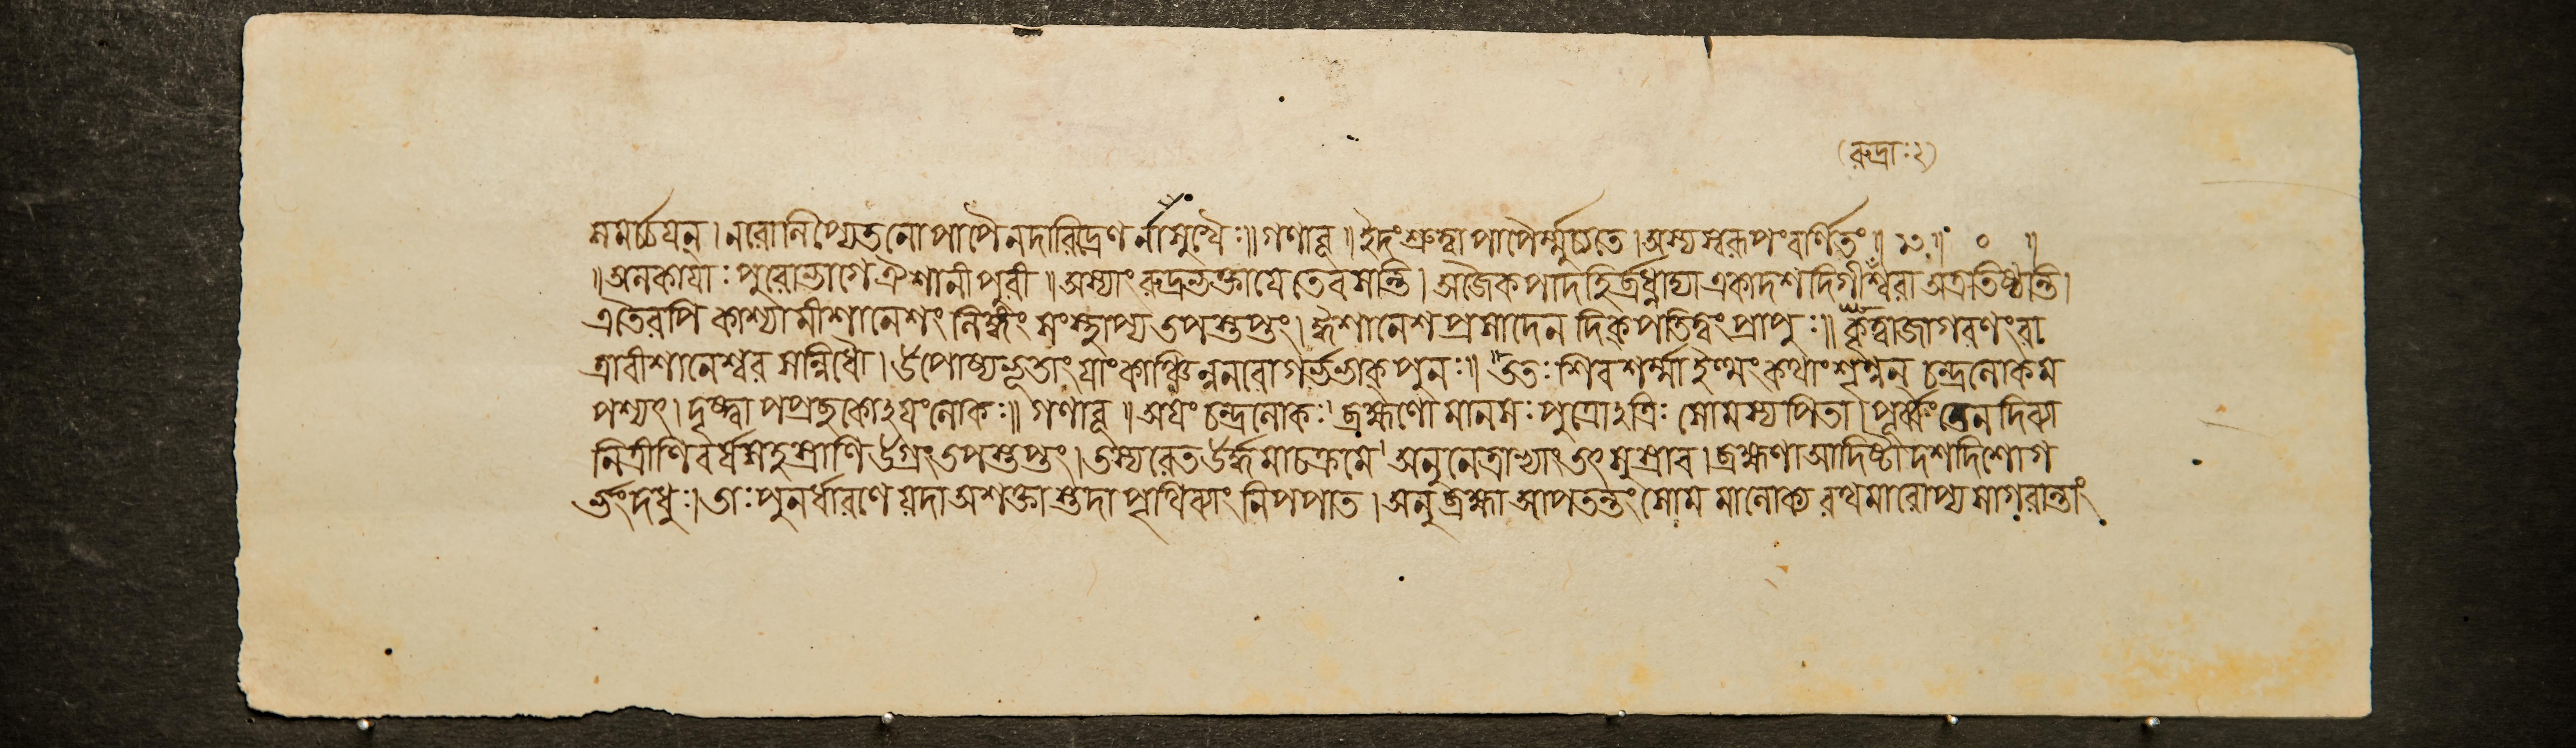 (রুদ্রাঃ২)
সমর্চ্চযন্। নরো নিপ্যেত নো পাপৈ ন দারিদ্রেণ র্নাসুখৈঃ॥ গণাবূ॥ ইদং শ্রুত্বা পাপৈর্ম্মুচ্যতে। অস্য স্বরূপং বর্ণিতং॥ ১৩॥ ॰ ॥
॥ অনকাযাঃ পুরোভাগে ঐশানী পুরী॥ অস্যাং রুদ্রভক্তা যে তে বসন্তি। অজৈকপাদহির্ব্রধ্নাদ্যা একাদশ দিগীশ্বরা অত্র তিষ্ঠন্তি।
এতৈরপি কাশ্যামীশানেশং নিঙ্গং সংস্থাপ্য তপস্তপ্তং। ঈশানেশপ্রসাদেন দিক্পতিত্বং প্রাপুঃ॥ কৃত্বা জাগরণং রা
ত্রাবীশানেশ্বরসন্নিধৌ। উপোষ্য ভূতাং যাং কাঞ্চিন্ন নরো গর্ব্ভভাক্ পুনঃ॥ ততঃ শিবশর্ম্মা ইত্থং কথাং শৃণ্বন্ চন্দ্রনোকম
পশ্যৎ। দৃষ্ট্বা পপ্রছ কোঽযং নোকঃ॥ গণাবূ॥ অযং চন্দ্রনোকঃ। ব্রহ্মণো মানসঃ পুত্রোঽত্রিঃ সোমস্য পিতা। পূর্ব্বং তেন দিব্যা
নি ত্রীণি বর্ষসহস্রাণি উগ্রং তপস্তপ্তং। তস্য রেত ঊর্দ্ধ্বমাচক্রমে। অনু নেত্রাভ্যাং তৎ সুস্রাব। ব্রহ্মণা আদিষ্টা দশদিশো গ
র্ভং দধুঃ। তাঃ পুনর্ধারণে য়দা অশক্তাস্তদা পৃথিব্যাং নিপপাত। অনু ব্রহ্মা আপতন্তং সোমমানোক্য রথমারোপ্য সাগরান্তাং